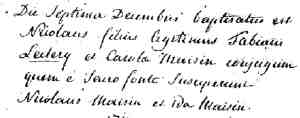 Die Septima Decembris baptisatus est
Nicolaus filius legitimus Fabiani
Leclercq et Carola Maisin conjugum
quem è sacro fonte susceperunt
Nicolaus Maisin et ida Maisin.